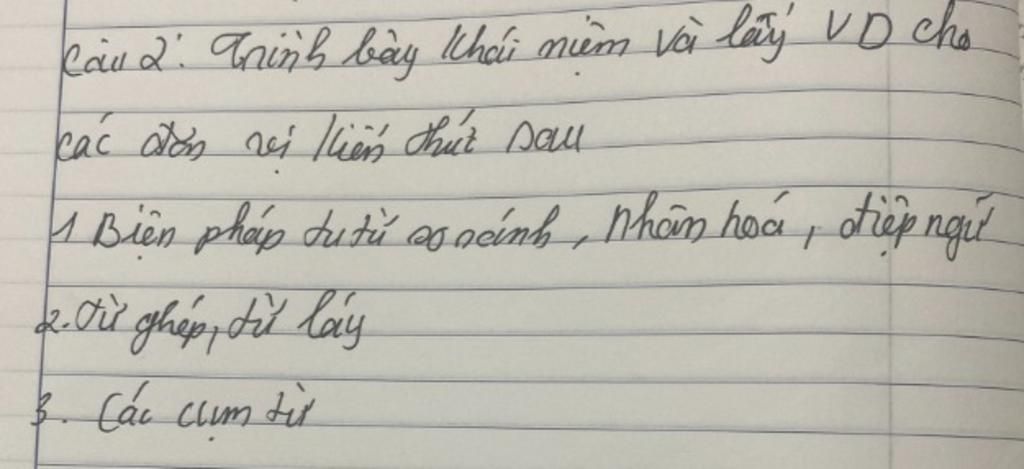 Câu 2: Trình bày khái niệm và lấy VD cho
các đơn vị kiến thức sau
1 Biện pháp tu từ so sánh, nhân hoá, điệp ngữ
2. Từ ghép, từ láy
3. Các cụm từ